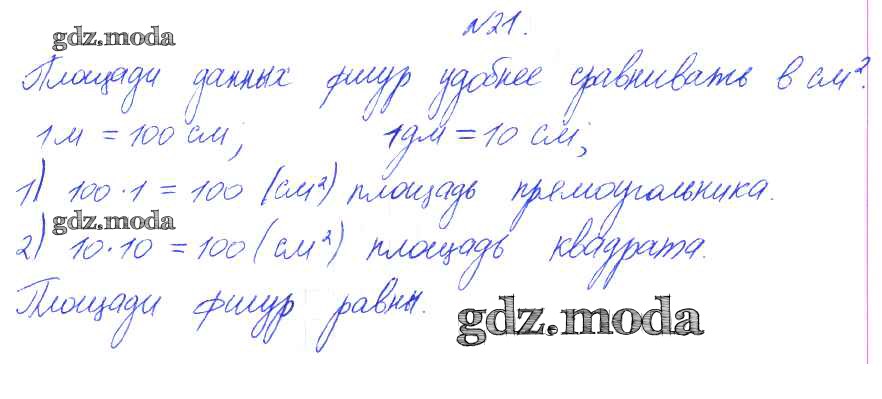 №21.
gdz.moda
Площади данных фигур удобнее сравнивать в см².
1м = 100 см; 1дм = 10 см;
1) 100·1 = 100 (см²) площадь прямоугольника.
gdz.moda
2) 10·10 = 100 (см²) площадь квадрата.
Площади фигур равны.
gdz.moda